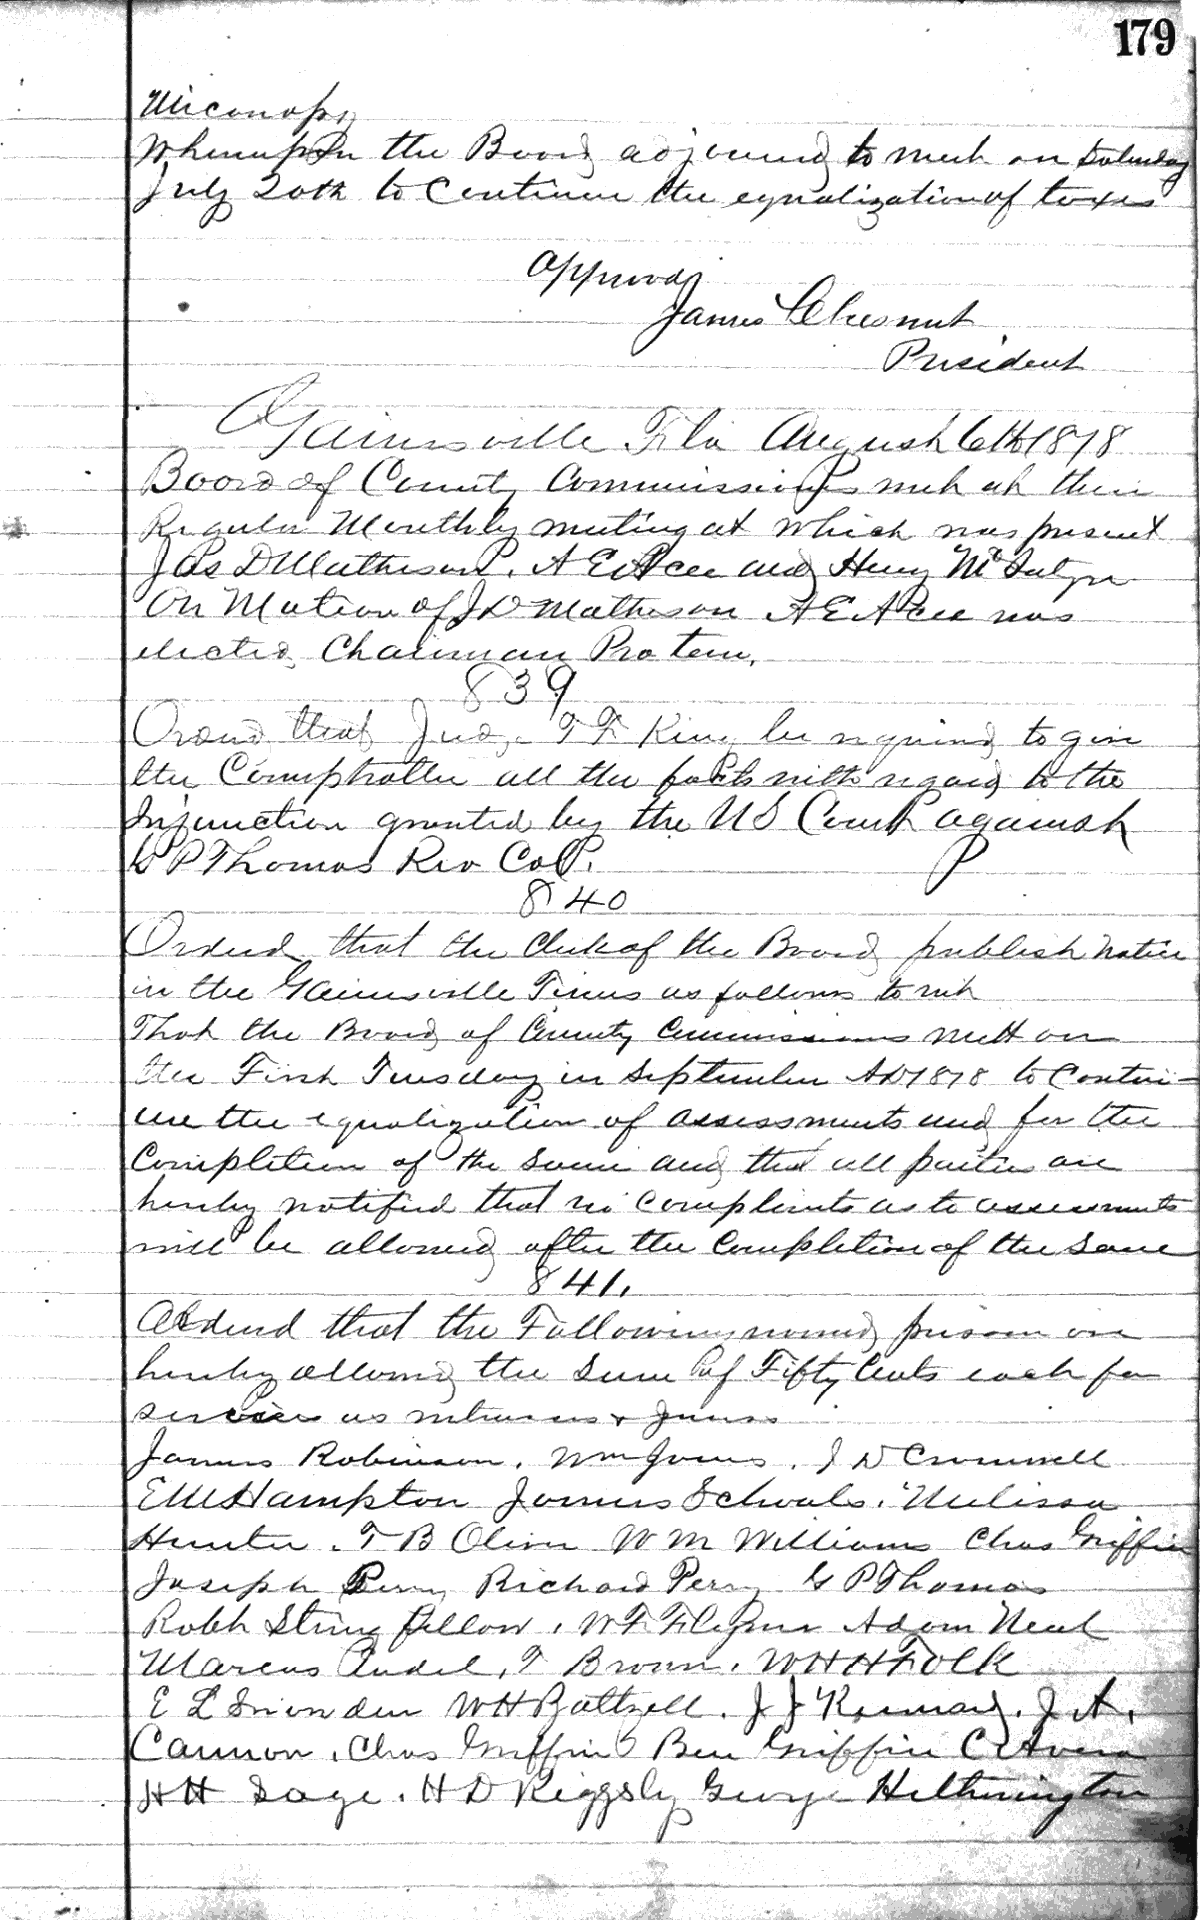 179
Miconopy
Whereupon the Board adjourned to meet on Saturday
July 20th to Continue the equalization of taxes
Approved
James Chesnut
President
Gainesville Fla August 6th 1878
Board of County Commissioners met at their
Regular Monthly meeting at which was present
Jas D Matheson, A E A cee and Henry McIntyre
On Motion of J D Matheson A E A cee was
elected Chairman Protem,
839
Ordered that Judge F F King be required to give
the Comptroller all the facts with regard to the
Injunction granted by the US Court against
D P Thomas Rev Col.
840
Ordered that the Clerk of the Board publish Notice
in the Gainesville Times as follows to wit
That the Board of County Commissioners meet on
the First Tuesday in September AD1878 to Contin-
ue the equalization of assessments and for the
Completion of the same and that all parties are
hereby notified that no Complaints as to assessments
will be allowed after the Completion of the same
841.
Ordered that the Following named person are
hereby allowed the Sum of Fifty Cents each for
Services as witnesses & Jurors
James Robinson, Wm Jones, J D Cromwell
E W Hampton James Schools, Melissa
Hunter, T B Oliver W M Williams Chas Griffin
Joseph Perry Richard Perry G P Thomas
Robt String fellow, W F Adam Neal
Marcus Andel, F Brown, W H H Folk
E L Snowden W H Baltzell, J J Kennard, J A,
Cannon, Chas Griffin Ben Griffin C Avera
H H Sage, H D Riggsly George Hethrington